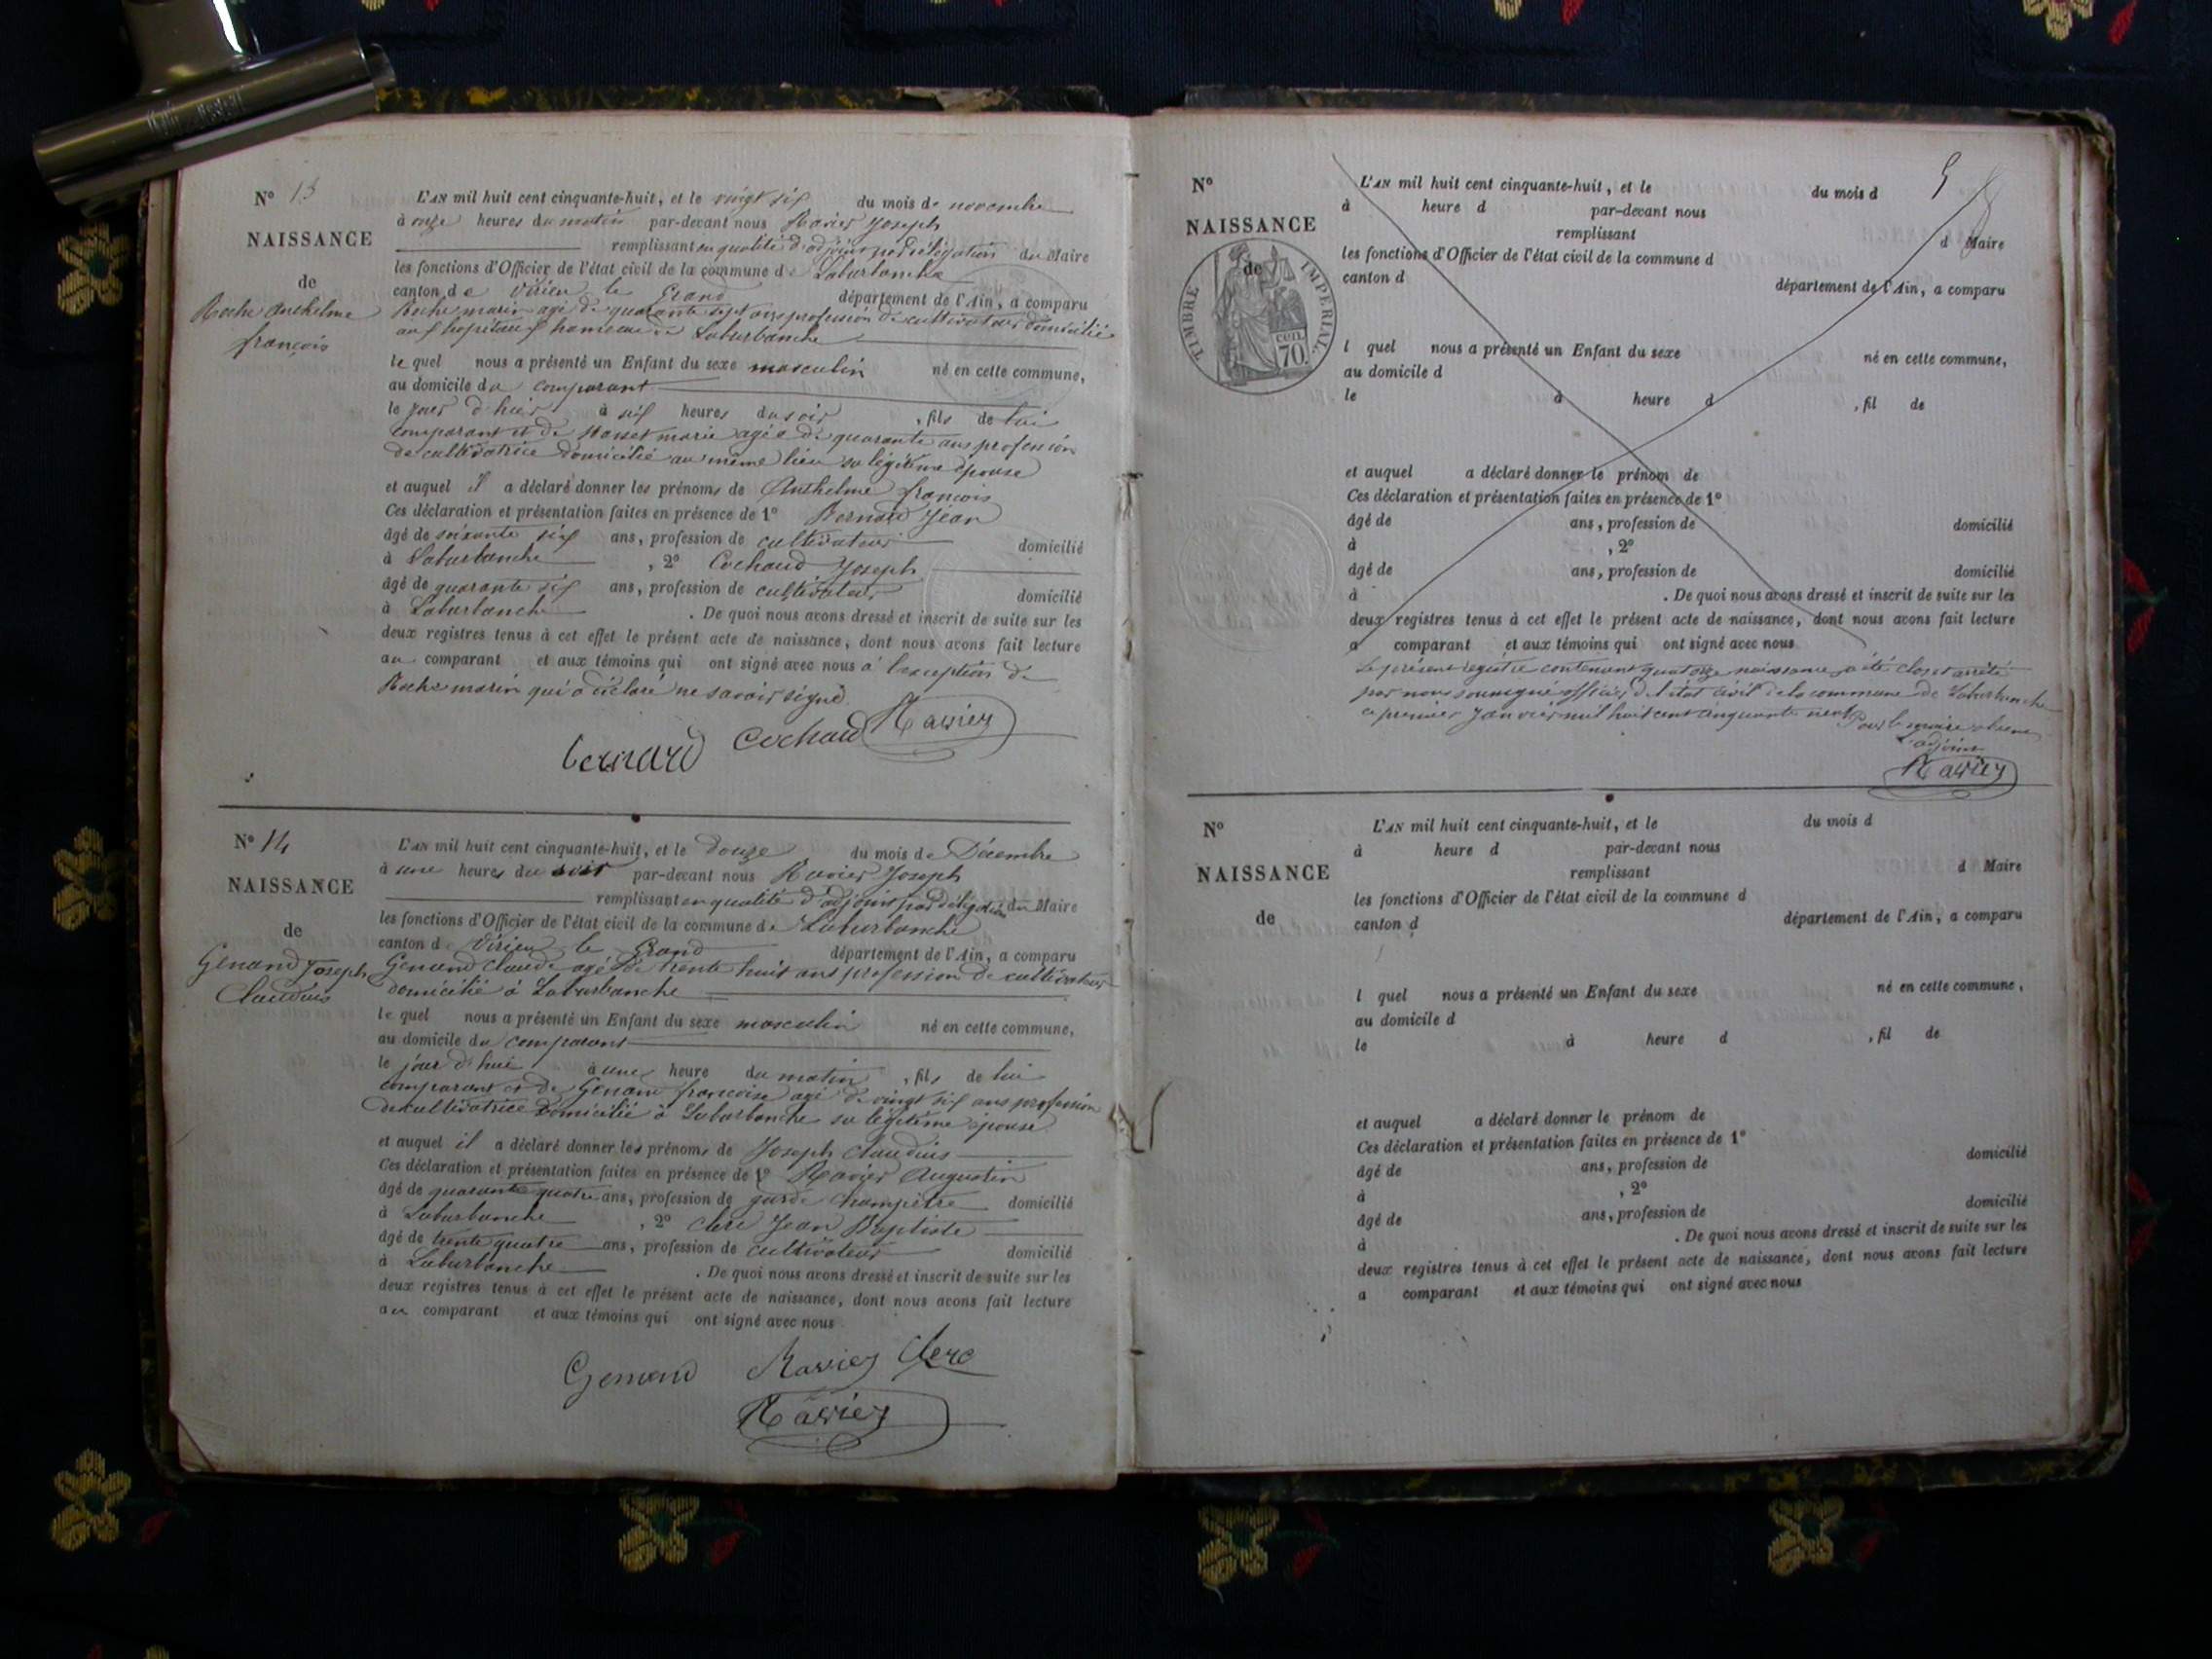 N° 13
NAISSANCE
de
Roche Anthelme
françois
L'AN mil huit cent cinquante-huit, et le vingt six du mois de novembre
à onze heures du matin par-devant nous Ravier Joseph
remplissant en qualité d'adjoint par délégation du Maire
les fonctions d'Officier de l'état civil de la commune de Laburbanche
canton de Virieu le Grand département de l'Ain, a comparu
Roche marin agé de quarante sept ans profession de cultivateur domicilié
hameau de Laburbanche
le quel nous a présenté un Enfant du sexe masculin né en cette commune,
au domicile du comparant
le jour d'hier à six heures du soir, fils de lui
comparant et de marie agée de quarante ans profession
de cultivatrice domicilié au même lieu sa légitime épouse
et auquel il a déclaré donner les prénoms de Anthelme françois
Ces déclaration et présentation faites en présence de 1° Bernard Jean
âgé de soixante six ans, profession de cultivateur domicilié
à Laburbanche, 2° Cochaud Joseph
âgé de quarante six ans, profession de cultivateur domicilié
à Laburbanche. De quoi nous avons dressé et inscrit de suite sur les
deux registres tenus à cet effet le présent acte de naissance, dont nous avons fait lecture
au comparant et aux témoins qui ont signé avec nous à l'exception de
Roche marin qui a déclaré ne savoir signé
Bernard Cochaud Ravier
N° 14
NAISSANCE
de
Genand Joseph
Claudius
L'AN mil huit cent cinquante-huit, et le douze du mois de Décembre
à une heures du soir par-devant nous Ravier Joseph
remplissant en qualité d'adjoint par délégation du Maire
les fonctions d'Officier de l'état civil de la commune de Laburbanche
canton de Virieu le Grand département de l'Ain, a comparu
Genand Claude agé de trente huit ans profession de cultivateur
domicilié à Laburbanche
le quel nous a présenté un Enfant du sexe masculin né en cette commune,
au domicile du comparant
le jour d'hui à une heure du matin, fils de lui
comparant et de Genand françoise agé de vingt six ans profession
de cultivatrice domicilié à Laburbanche sa légitime épouse
et auquel il a déclaré donner les prénoms de Joseph Claudius
Ces déclaration et présentation faites en présence de 1° Ravier Augustin
âgé de quarante quatre ans, profession de garde champêtre domicilié
à Laburbanche, 2° Clerc Jean Baptiste
âgé de trente quatre ans, profession de cultivateur domicilié
à Laburbanche. De quoi nous avons dressé et inscrit de suite sur les
deux registres tenus à cet effet le présent acte de naissance, dont nous avons fait lecture
au comparant et aux témoins qui ont signé avec nous
Genand Ravier Clerc
Ravier
5
N°
NAISSANCE
de
TIMBRE IMPERIAL
70 cen.
L'AN mil huit cent cinquante-huit, et le du mois d
à heure d par-devant nous
remplissant d Maire
les fonctions d'Officier de l'état civil de la commune d
canton d département de l'Ain, a comparu
l quel nous a présenté un Enfant du sexe né en cette commune,
au domicile d
le à heure d, fil de
et auquel a déclaré donner le prénom de
Ces déclaration et présentation faites en présence de 1°
âgé de ans, profession de domicilié
à, 2°
âgé de ans, profession de domicilié
à. De quoi nous avons dressé et inscrit de suite sur les
deux registres tenus à cet effet le présent acte de naissance, dont nous avons fait lecture
a comparant et aux témoins qui ont signé avec nous
Le présent registre contenant quatorze naissance a été clos et arrêté
par nous soussigné officier de l'état civil de la commune de Laburbanche
ce premier Janvier mil huit cent cinquante neuf Pour le maire absent
L'adjoint
Ravier
N°
NAISSANCE
de
L'AN mil huit cent cinquante-huit, et le du mois d
à heure d par-devant nous
remplissant d Maire
les fonctions d'Officier de l'état civil de la commune d
canton d département de l'Ain, a comparu
l quel nous a présenté un Enfant du sexe né en cette commune,
au domicile d
le à heure d, fil de
et auquel a déclaré donner le prénom de
Ces déclaration et présentation faites en présence de 1°
âgé de ans, profession de domicilié
à, 2°
âgé de ans, profession de domicilié
à. De quoi nous avons dressé et inscrit de suite sur les
deux registres tenus à cet effet le présent acte de naissance, dont nous avons fait lecture
a comparant et aux témoins qui ont signé avec nous